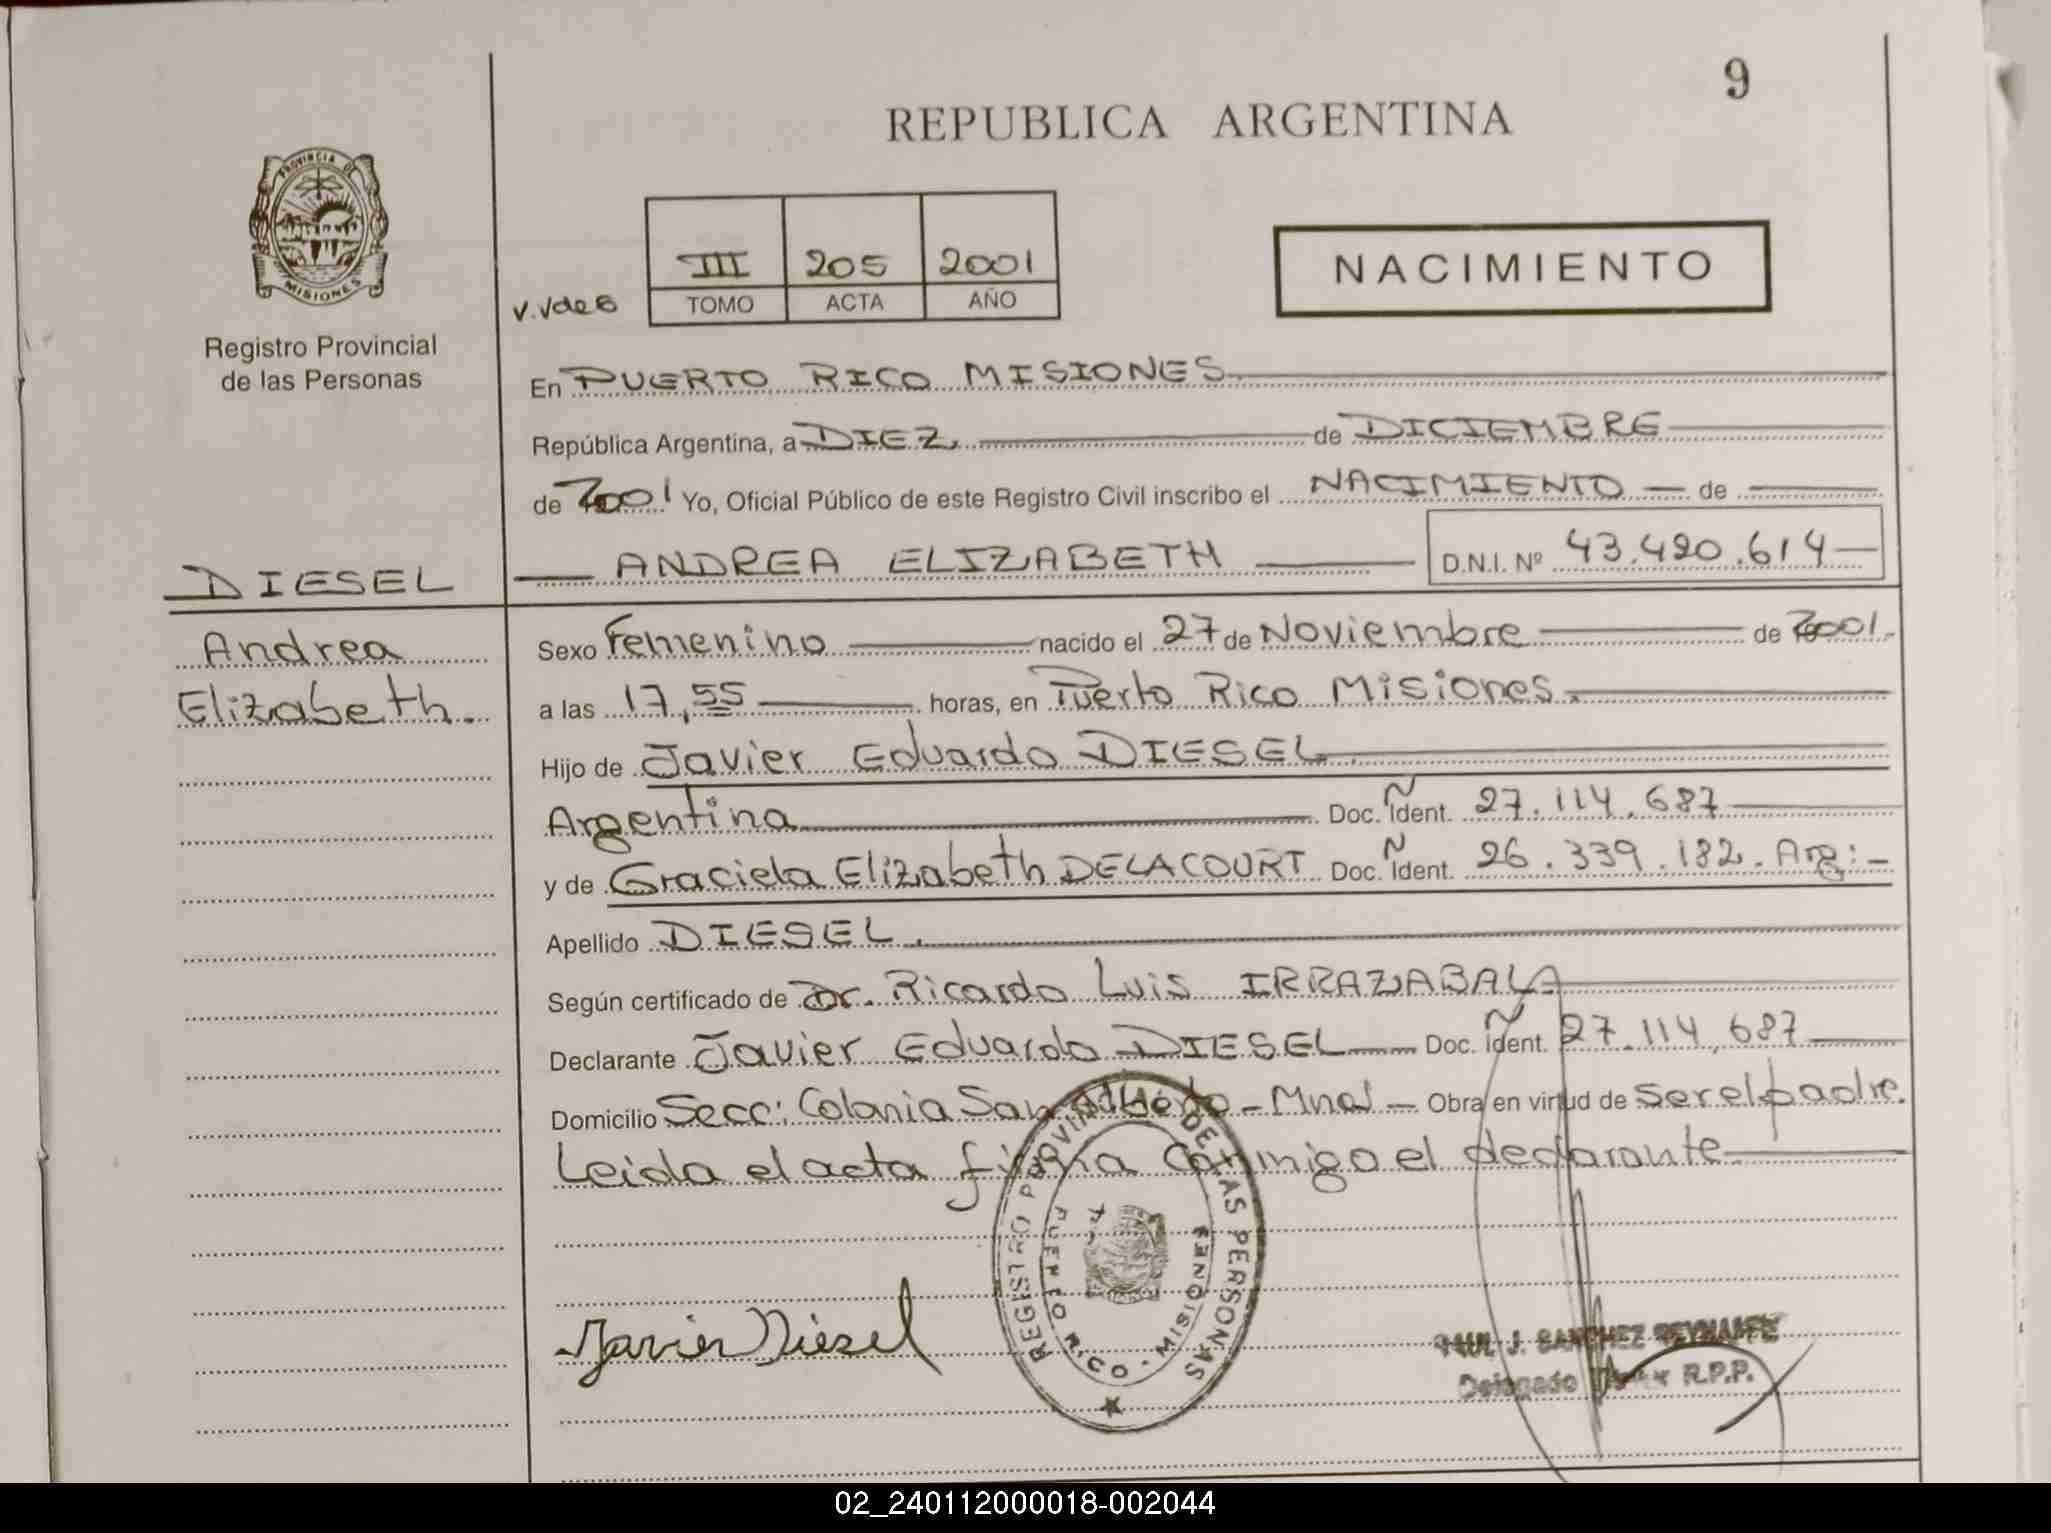 9
REPUBLICA ARGENTINA
PROVINCIA DE
MISIONES
Registro Provincial
de las Personas
III 205 2001
V.Vde6 TOMO ACTA AÑO
NACIMIENTO
En PUERTO RICO MISIONES
República Argentina, a DIEZ de DICIEMBRE
de 2001 Yo, Oficial Público de este Registro Civil inscribo el NACIMIENTO de
ANDREA ELIZABETH D.N.I. Nº 43.420.614
DIESEL
Andrea
Elizabeth.
Sexo Femenino nacido el 27 de Noviembre de 2001.
a las 17,55 horas, en Puerto Rico Misiones.
Hijo de Javier Eduardo DIESEL.
Argentina Doc. Ident. 27.114.687
y de Graciela Elizabeth DELACOURT Doc. Ident. 26.339.182. Arg:-
Apellido DIESEL.
Según certificado de Dr. Ricardo Luis IRRAZABALA
Declarante Javier Eduardo DIESEL Doc. Ident. 27.114.687
Domicilio Secc: Colonia San Alberto - Mnes - Obra en virtud de ser el padre.
Leida el acta firma conmigo el declarante.
REGISTRO PROVINCIAL DE LAS PERSONAS
PUERTO RICO - MISIONES
Javier Diesel
J. SANCHEZ
Delegado R.P.P.
02_240112000018-002044